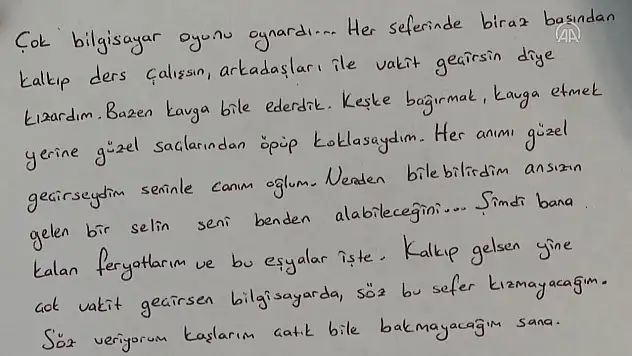 Çok bilgisayar oyunu oynardı... Her seferinde biraz başından
kalkıp ders çalışsın, arkadaşları ile vakit geçirsin diye
kızardım. Bazen kavga bile ederdik. Keşke bağırmak, kavga etmek
yerine güzel saçlarından öpüp koklasaydım. Her anımı güzel
geçirseydim seninle canım oğlum. Nerden bilebilirdim ansızın
gelen bir selin seni benden alabileceğini... Şimdi bana
kalan feryatlarım ve bu eşyalar işte. Kalkıp gelsen yine
çok vakit geçirsen bilgisayarda, söz bu sefer kızmayacağım.
Söz veriyorum kaşlarım çatık bile bakmayacağım sana.
AA